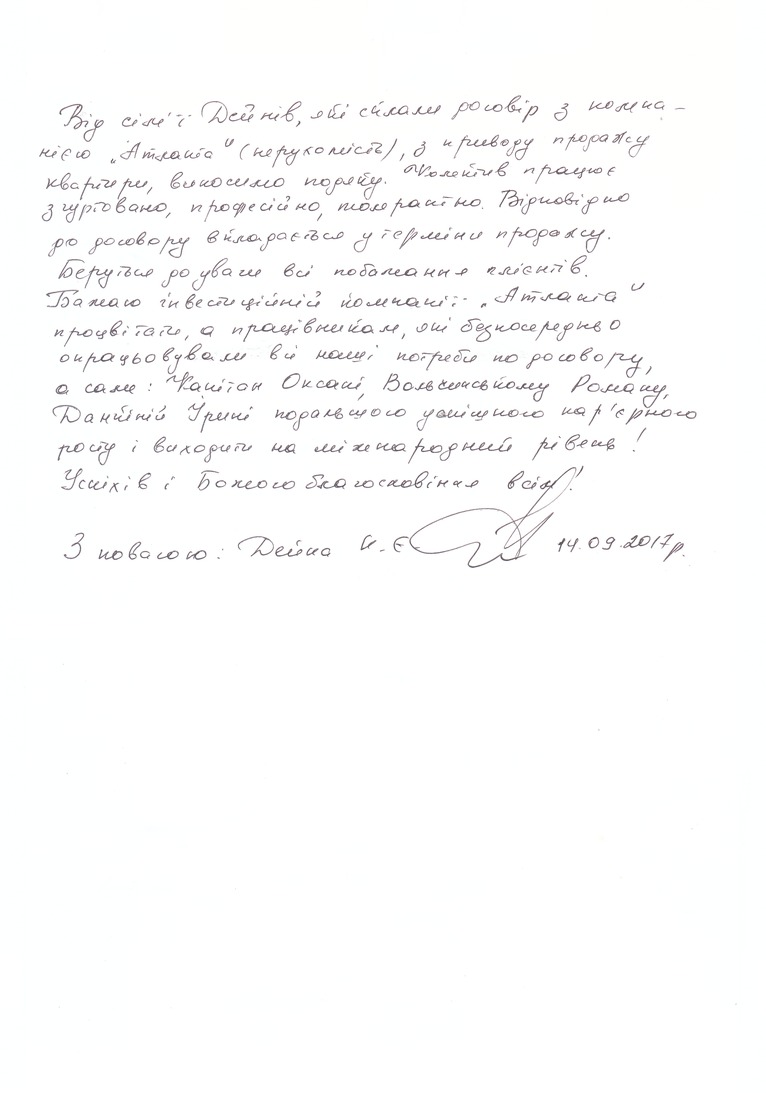 Від сім'ї Дейнів, які склали договір з компа-
нією „Атланта" (нерухомість), з приводу продажу
квартири, виносимо подяку. Колектив працює
згуртовано, професійно, толерантно. Відповідно
до договору вкладається у терміни продажу.
Беруться до уваги всі побажання клієнтів.
Бажаю інвестиційній компанії „Атланта"
процвітати, а працівникам, які безпосередньо
опрацьовували всі наші потреби по договору,
а саме: Капітон Оксані, Вольшинському Роману,
Ірині подальшого успішного кар'єрного
росту і виходити на міжнародний рівень!
Успіхів і Божого благословіння всім!
З повагою: Дейна Є. 14.09.2017р.